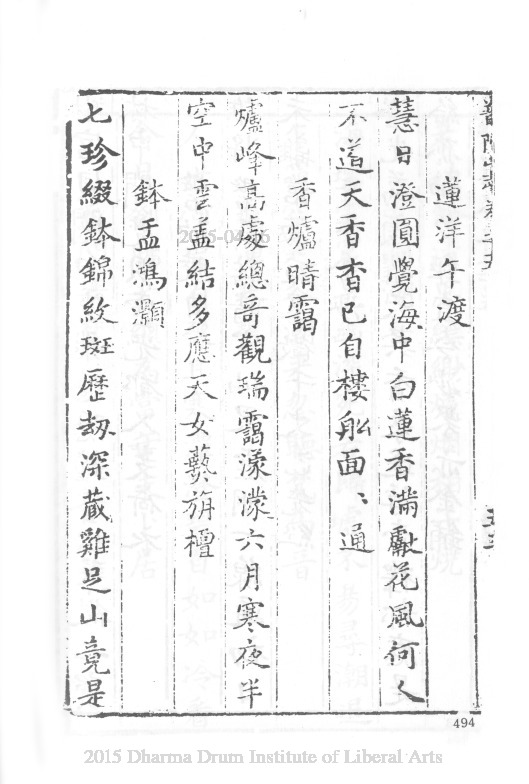 普陀山志卷之十五
蓮洋午渡
慧日澄圓覺海中白蓮香滿獻花風何人
不道天香杳已自樓船面、通
香爐晴靄
爐峰高處總奇觀瑞靄濛濛六月寒夜半
空中雲盖結多應天女爇旃檀
鉢盂鴻灝
七珍綴鉢錦紋斑歷刼深藏雞足山竟是
494
2015-04-16
2015 Dharma Drum Institute of Liberal Arts